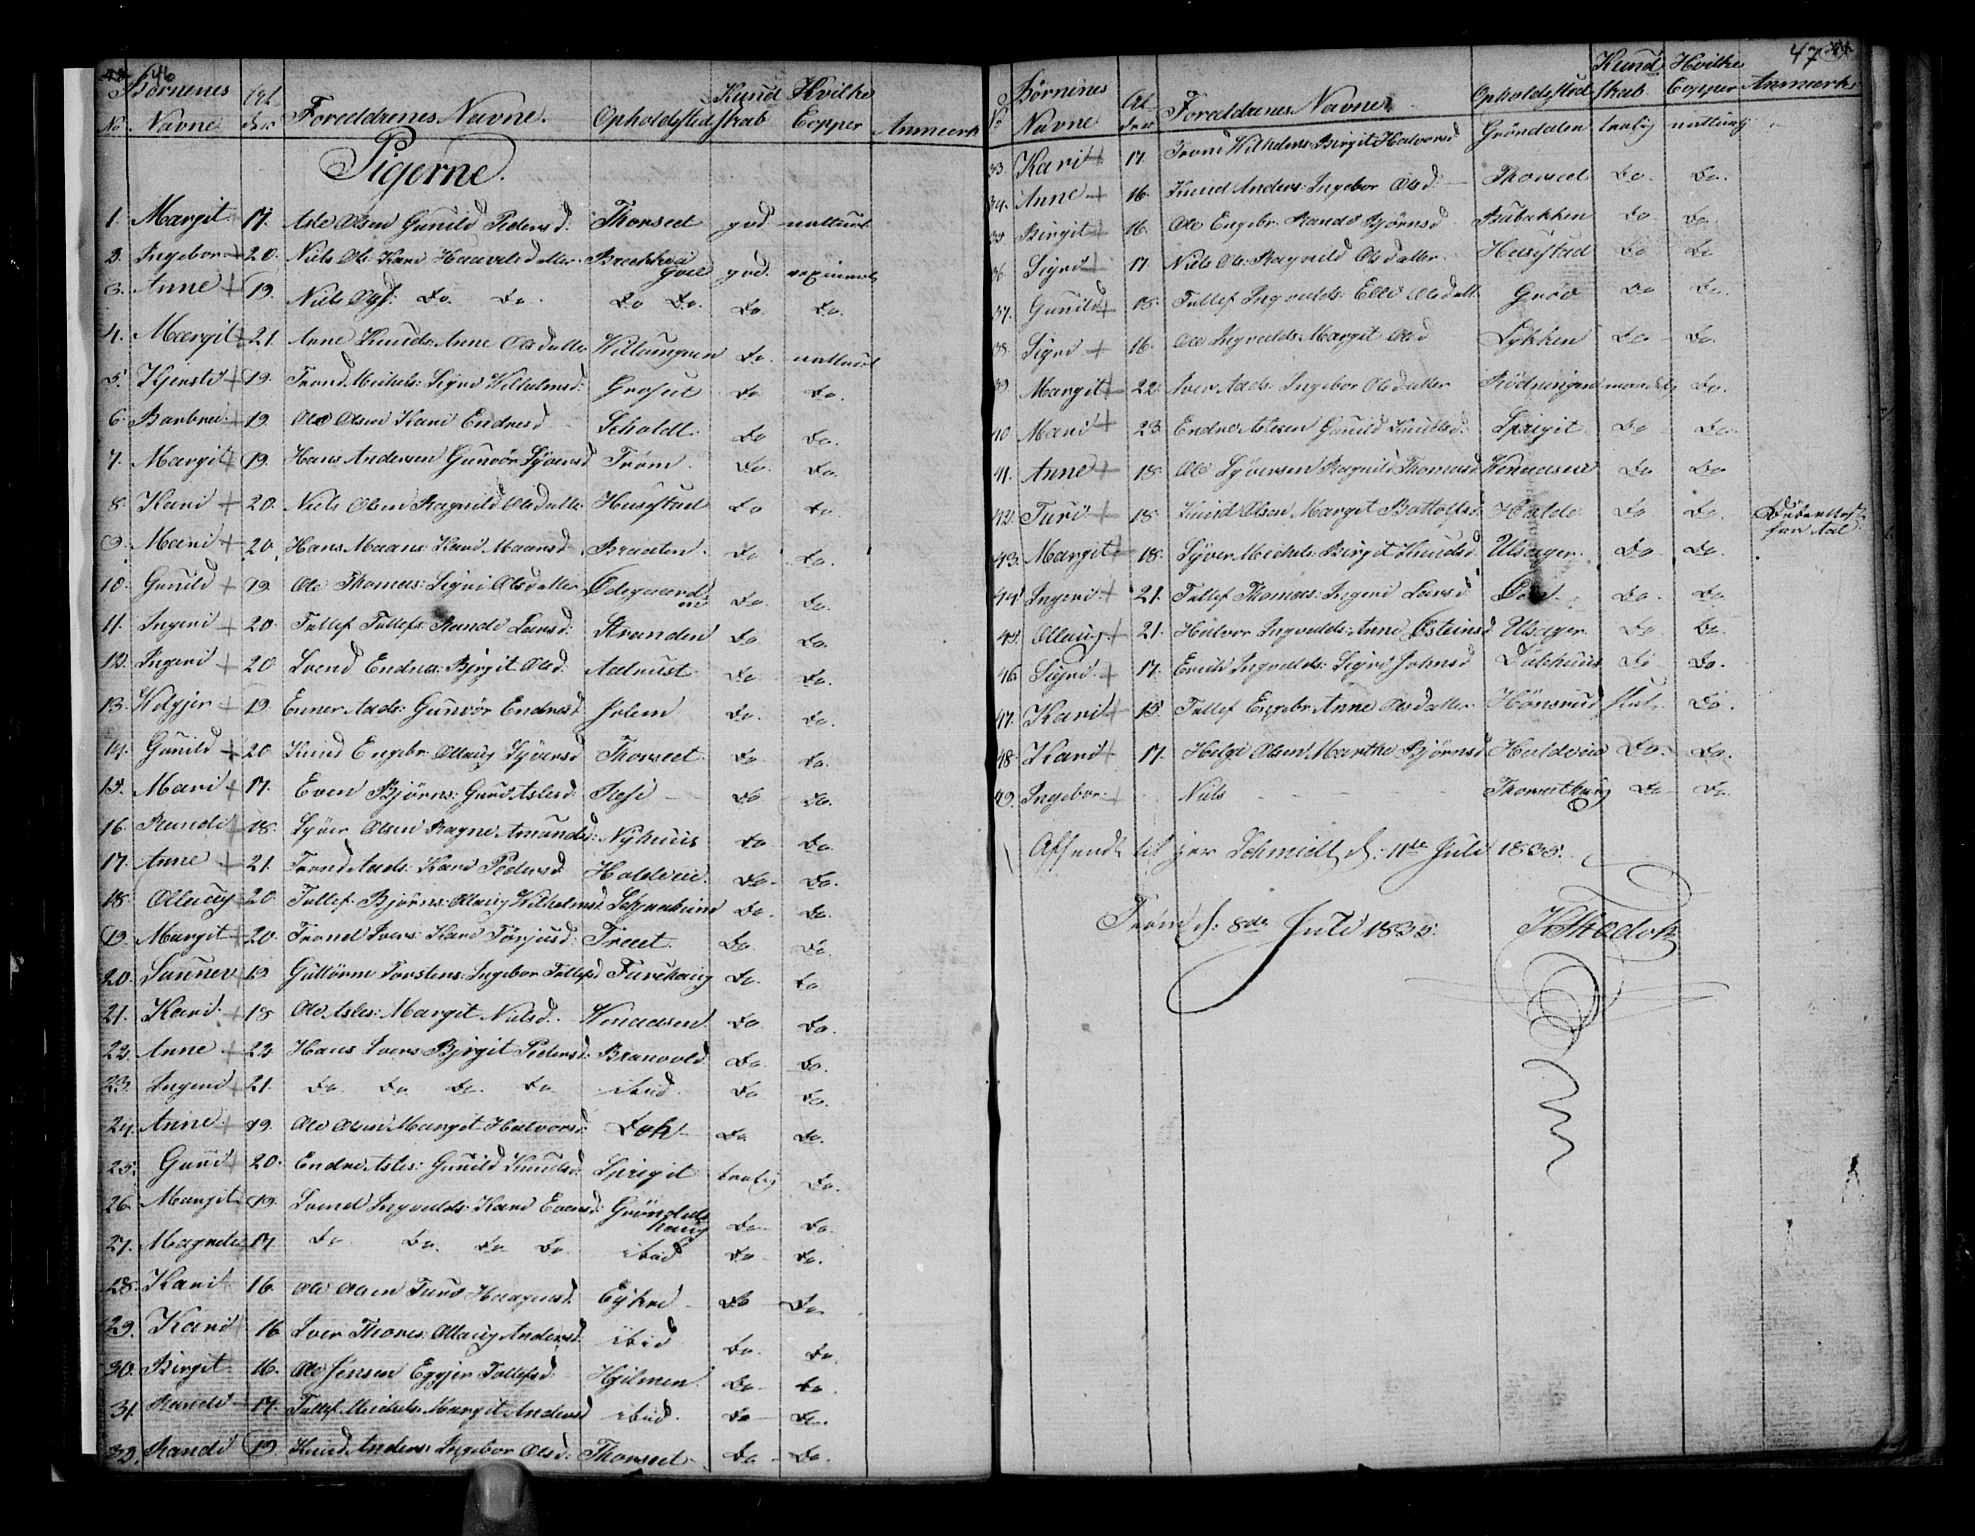 46
No. Børnenes Navne. Alderen Foreldrenes Navne. Opholdssted Kundskab Hvilke Copper Anmærk
Pigerne.
1. Margit 17. Asle Olsen Gunild Pedersd: Thorset god naturl
2. Ingebor + 20. Niels Ols: Kari Haavelsdatter Brækken god
3. Anne + 19. Niels Ols: Do. Do. Do Do. Do. Do.
4. Margit + 21. Arne Knuds: Anne Olsdatter Do. naturl
5. Kjersti + 19. Trond Michels: Sigri Wilhelmsd: Do Do.
6. Barbra + 19. Ole Olsen Kari Endresd Scholdt. Do Do.
7. Margit + 19. Hans Andersen Gunvor Syversd Trøm. Do. Do.
8. Kari + 20. Niels Olsen Ragnild Olsdatter Husstad Do Do.
9. Mari + 20. Hans Maans: Kari Maansd Braaten. Do Do.
10. Gunild + 19. Ole Thomas: Sigri Olsdatter Ødegaarden Do. Do.
11. Ingeri + 20. Tollef Tollefs: Randi Larsd: Stranden Do Do.
12. Ingeri + 20 Svend Endres: Birgit Olsd. Do Do.
13. + 19. Asles: Gunvor Endresd Jolem Do. Do.
14. Gunild + 20 Knud Engebr: Ollaug Syversd Thorset. Do Do.
15. Mari + 17. Even Bjørns: Guri Aslesd: Do Do.
16. Randi + 18. Syver Olsen Ragne Amundsd: Nyhuus Do Do.
17. Anne + 21. Trond Asles: Kari Pedersd Do. Do.
18. Ollaug 20. Tollef Bjørns: Ollaug Wilhelmsd. Do. Do.
19. Margit + 20. Trond Ivers: Kari Torjusd: Træet. Do. Do
20. Sunnev + 19 Guttorm Torstens: Ingebor Tollefsd Furehaug Do. Do
21. Kari + 18 Ole Asles: Margit Nielsd. Wenaasen Do Do.
22. Anne + 22 Hans Ivers: Birgit Pedersd: Branvold Do Do.
23. Ingeri + 21. Do. Do Do. Do ibid. Do Do.
24. Anne + 19. Ole Olsen Margit Halvorsd: Do Do.
25. Guri + 20. Endre Asles: Gunild Knudsd: Sprigit taalig Do.
26. Margit 19. Svend Ingvalds: Kari Evensd: Grøndalshaug Do Do.
27. 17. Do Do. Do Do ibid Do Do.
28. Kari + 16. Ole Olsen Turi Haagensd. Do Do.
29. Kari 16 Iver Thores: Ollaug Andersd: ibid Do. Do.
30. Birgit 16. Ole Jensen Eggjer Tollefsd. Hjelmen. Do. Do.
31. Randi 17. Tollef Michels: Margit Andersd ibid. Do Do.
32. Randi 19. Knud Anders: Ingebor Olsd: Thorset Do Do.
47
No Børnenes Navne Alderen Foreldrenes Navner Opholdssted Kundskab Hvilke Copper Anmærk
33. Kari + 17. Trond Wilhelms: Birgit Halvorsd Grøndalen taalig naturlig
34. Anne + 16. Knud Anders: Ingebor Olsd. Thorset Do. Do.
35 Birgit + 16. Ole Engebr: Randi Bjørnsd Do. Do.
36. Sigri + 17 Niels Ols: Ragnild Olsdatter Husstad Do Do
37. Gunild + 18. Tollef Ingvalds: Olsdatt Do Do.
38. Sigri + 16. Ole Ingvalds: Margit Olsd Løkken Do Do.
39 Margit + 22. Iver Asles: Ingebor Olsdatter Rødningen Do.
40 Mari + 23 Endre Aslesen Gunild Knudsd: Sprigit. Do Do.
41. Anne + 18 Ole Syversen Ragnild Thomasd. Wenaasen Do Do
42. Turi + 18. Knud Olsen Margit Bottolfsd Do Do. fra Aal.
43. Margit + 18. Syver Michels: Birgit Knudsd. Ulsager. Do Do.
44. Ingeri + 21. Tollef Thomas: Ingeri Larsd Do. Do
45. Ollaug + 21. Halvor Ingvalds: Anne Østeinsd Ulsager Do Do.
46. Sigri + 17. Ingvalds: Sigri Johnsd Do Do.
47. Kari + 15. Tollef Engebr: Anne Olsdatter Hønsrud slet. Do.
48. Kari + 17. Helge Olsen Marthe Bjørnsd Do. Do.
49. Ingebor + Niels Do Do.
Afsendt til Schmidt d: 11te Juli 1835.
Trøm d: 8de Juli 1835.